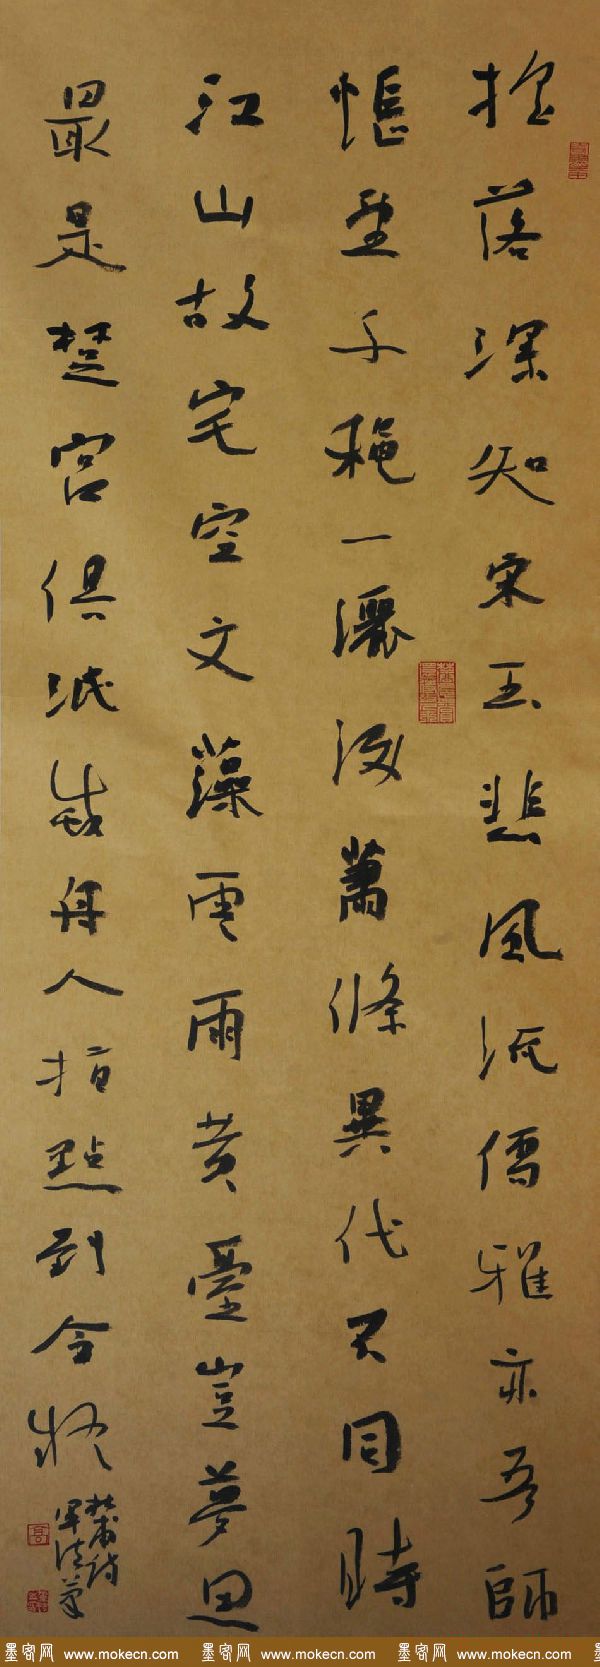 摇落深知宋玉悲风流儒雅亦吾師
悵望千秋一灑淚蕭條異代不同時
江山故宅空文藻雲雨荒臺豈夢思
最是楚宮俱泯滅舟人指點到今疑
杜甫詩
墨客网 www.mokecn.com 墨客网 www.mokecn.com 墨客网 www.mokecn.com 墨客网